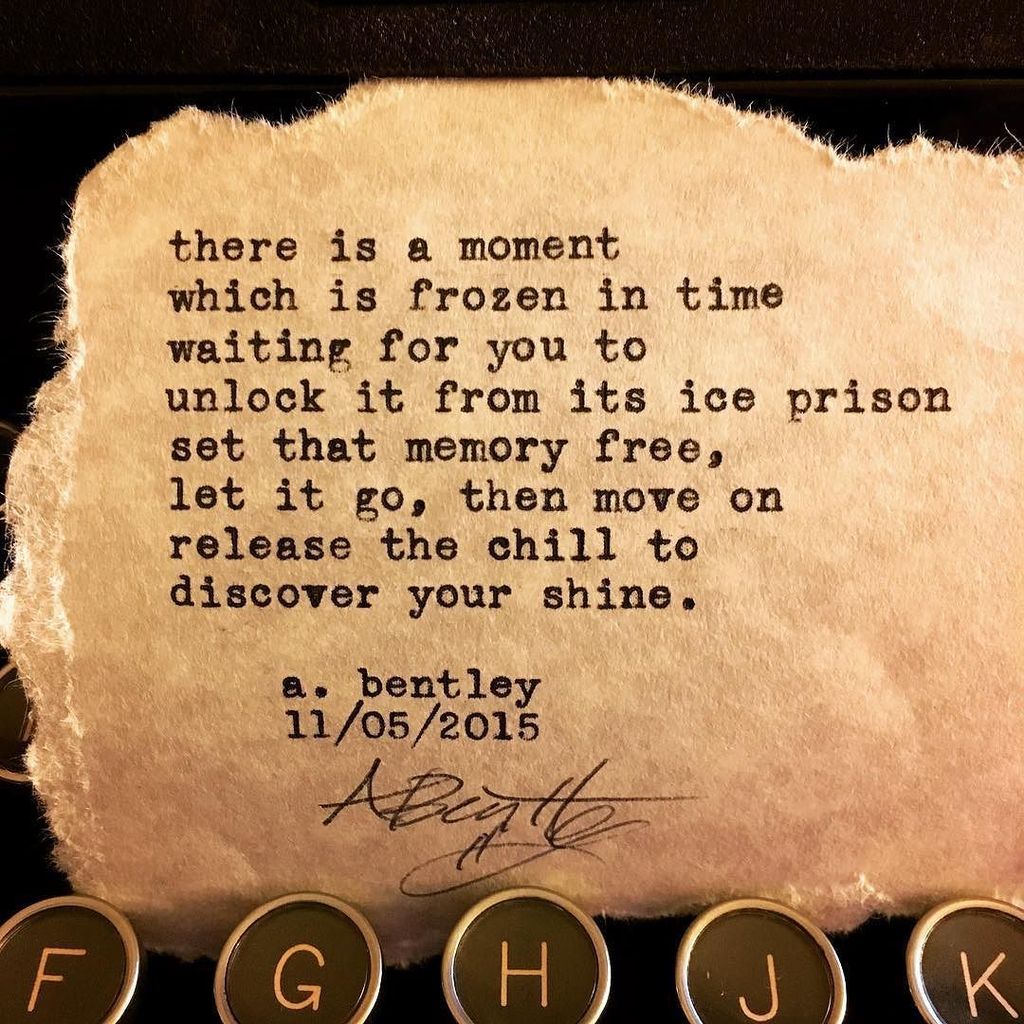 there is a moment
which is frozen in time
waiting for you to
unlock it from its ice prison
set that memory free,
let it go, then move on
release the chill to
discover your shine.
a. bentley
11/05/2015
ABentley
F G H J K